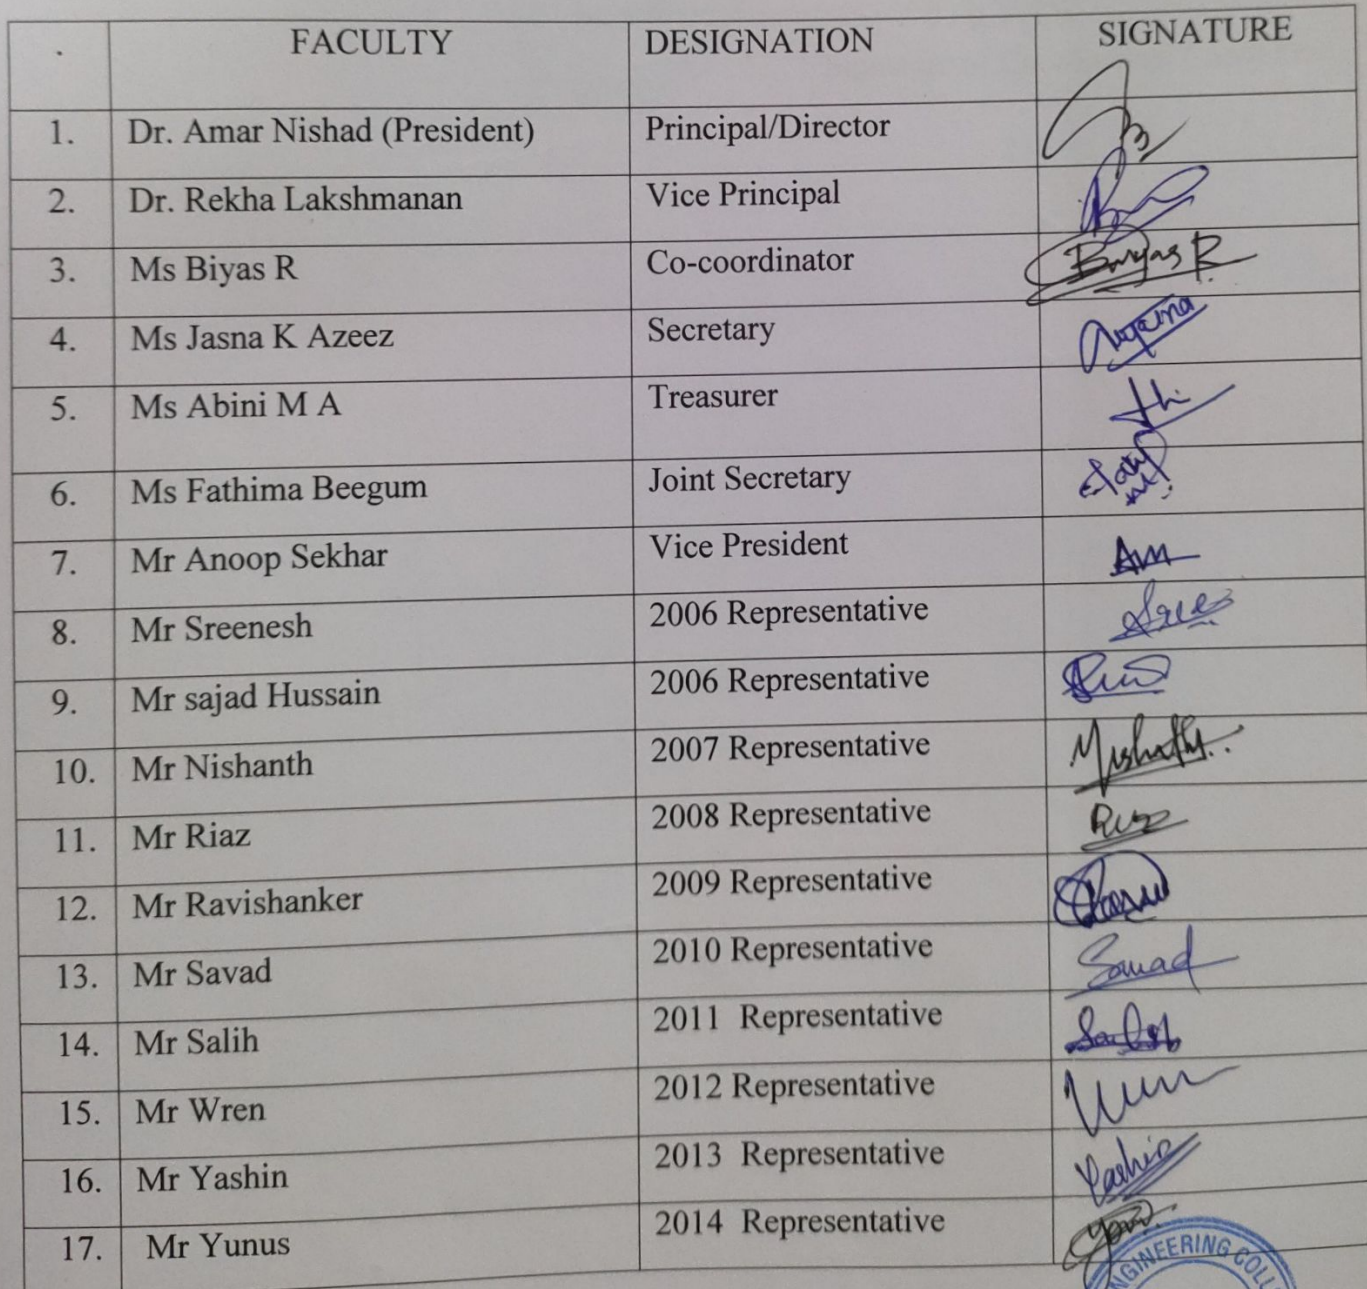 . FACULTY DESIGNATION SIGNATURE
1. Dr. Amar Nishad (President) Principal/Director
2. Dr. Rekha Lakshmanan Vice Principal
3. Ms Biyas R Co-coordinator Biyas R
4. Ms Jasna K Azeez Secretary
5. Ms Abini M A Treasurer
6. Ms Fathima Beegum Joint Secretary
7. Mr Anoop Sekhar Vice President
8. Mr Sreenesh 2006 Representative
9. Mr sajad Hussain 2006 Representative
10. Mr Nishanth 2007 Representative
11. Mr Riaz 2008 Representative
12. Mr Ravishanker 2009 Representative
13. Mr Savad 2010 Representative
14. Mr Salih 2011 Representative
15. Mr Wren 2012 Representative
16. Mr Yashin 2013 Representative Yashin
17. Mr Yunus 2014 Representative